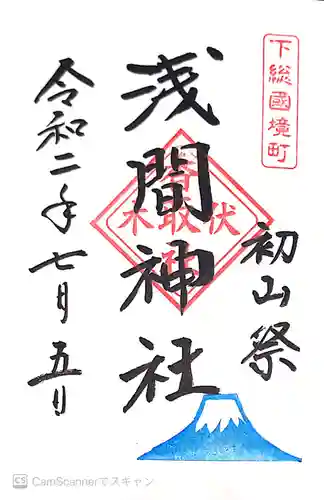 下総國境町
初山祭
浅間神社
香取
木取伏
令和二年七月五日
CS CamScannerでスキャン